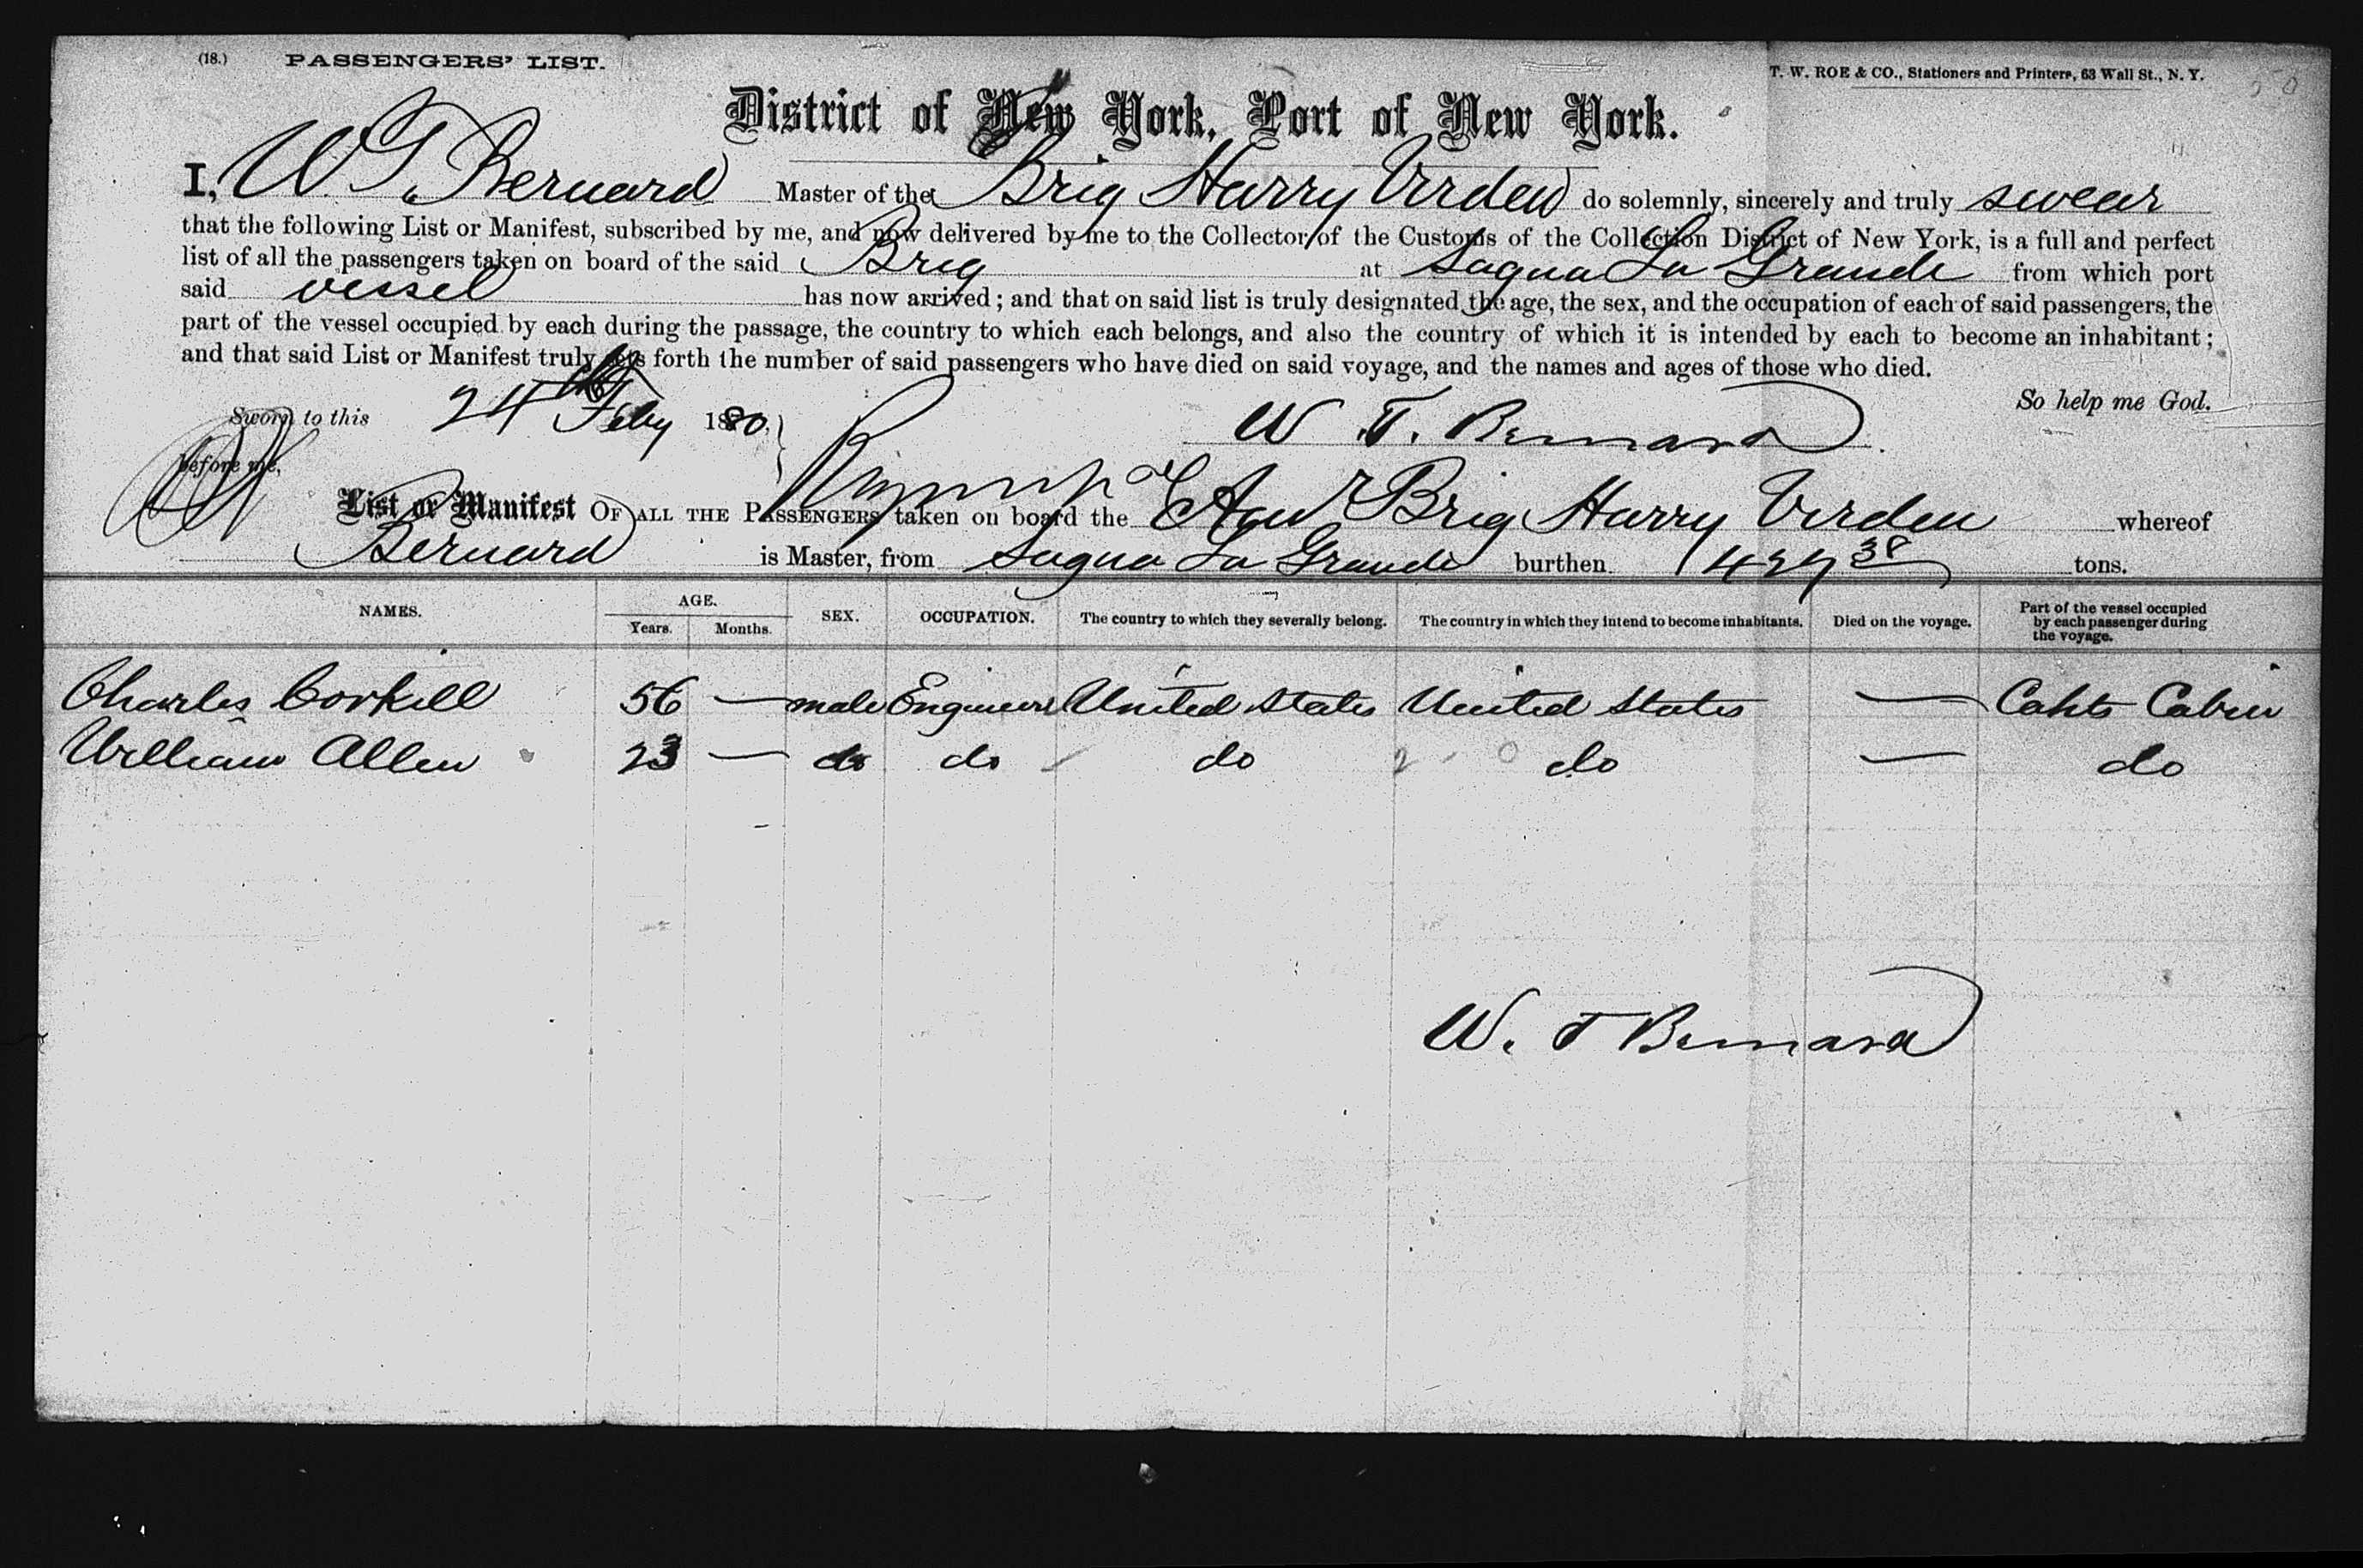 (18.) PASSENGERS' LIST. T. W. ROE & CO., Stationers and Printers, 63 Wall St., N. Y.
District of New York, Port of New York.
I, W. T. Bernard Master of the Brig Harry Virden do solemnly, sincerely and truly swear
that the following List or Manifest, subscribed by me, and now delivered by me to the Collector of the Customs of the Collection District of New York, is a full and perfect
list of all the passengers taken on board of the said Brig at Sagua La Grande from which port
said vessel has now arrived; and that on said list is truly designated the age, the sex, and the occupation of each of said passengers, the
part of the vessel occupied by each during the passage, the country to which each belongs, and also the country of which it is intended by each to become an inhabitant;
and that said List or Manifest truly sets forth the number of said passengers who have died on said voyage, and the names and ages of those who died.
So help me God.
Sworn to this 24th Feby 1880. W. T. Bernard
before me,
List or Manifest OF ALL THE PASSENGERS taken on board the Am Brig Harry Virden whereof
Bernard is Master, from Sagua La Grande burthen 427 38 tons.
NAMES. AGE. Years. Months. SEX. OCCUPATION. The country to which they severally belong. The country in which they intend to become inhabitants. Died on the voyage. Part of the vessel occupied by each passenger during the voyage.
Charles Corkill 56 — male Engineer United States United States — Capts Cabin
William Allen 23 — do do do do — do
W. T Bernard